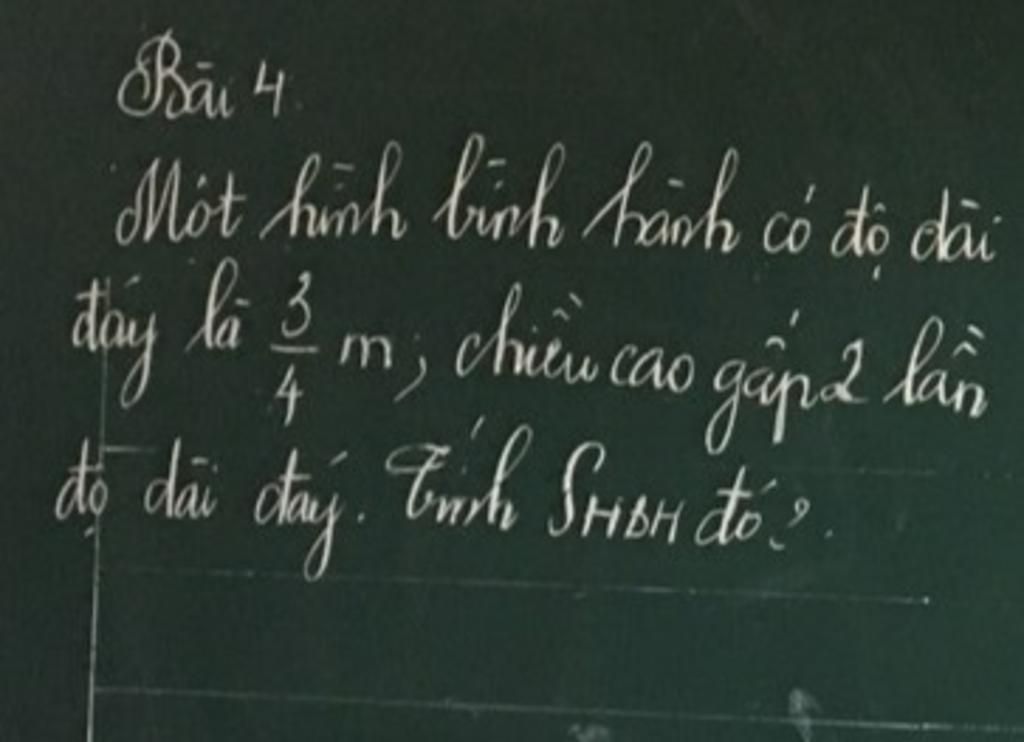 Bài 4.
Một hình bình hành có độ dài
đáy là 3/4 m; chiều cao gấp 2 lần
độ dài đáy. Tính SHBH đó?.